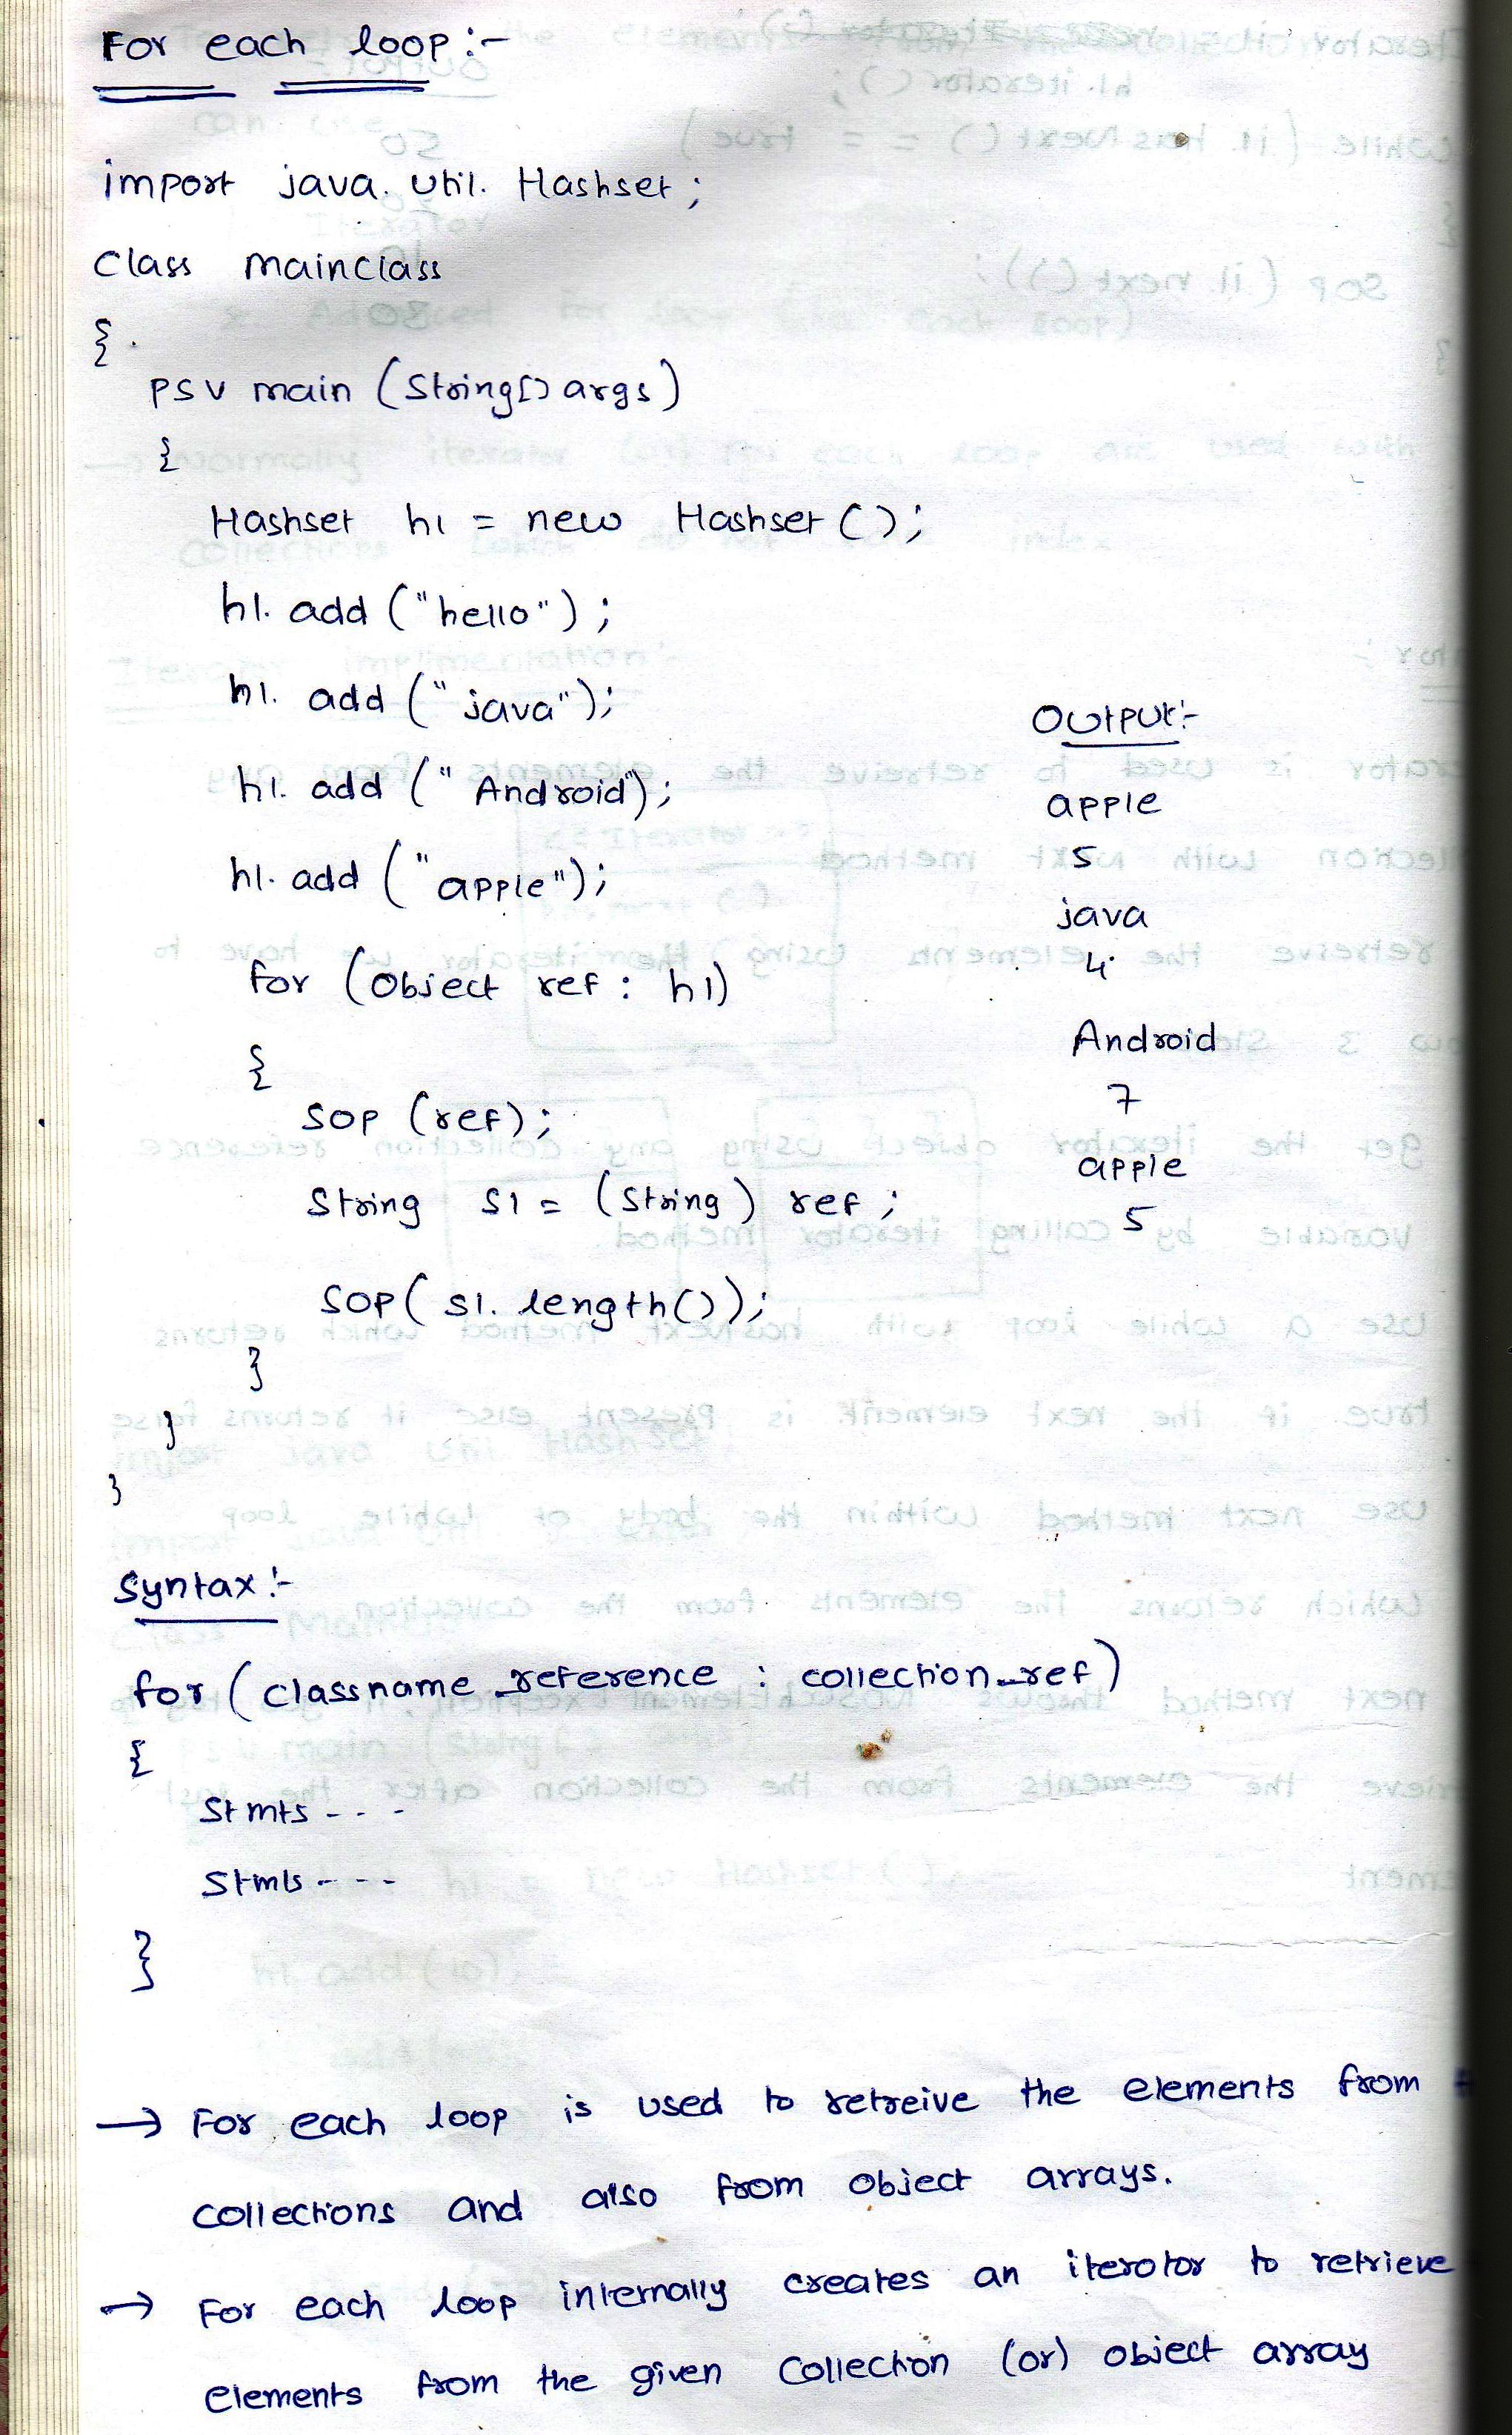 For each loop:-
import java. util. Hashset ;
Class mainclass
{
PSV main (String[] args)
{
Hashset h1 = new Hashset ();
h1. add ("hello") ;
h1. add ("java");
h1. add (" Android");
h1. add ("apple");
for (Object ref : h1)
{
SOP (ref);
String s1 = (String) ref ;
SOP( s1. length());
}
}
}
Output:-
apple
5
java
4
Android
7
apple
5
Syntax :-
for ( classname_reference : collection_ref)
{
Stmts - - -
Stmts - - -
}
→ For each loop is used to retreive the elements from
collections and also from object arrays.
→ For each loop internally creates an iterotor to retrieve
elements from the given Collection (or) object array